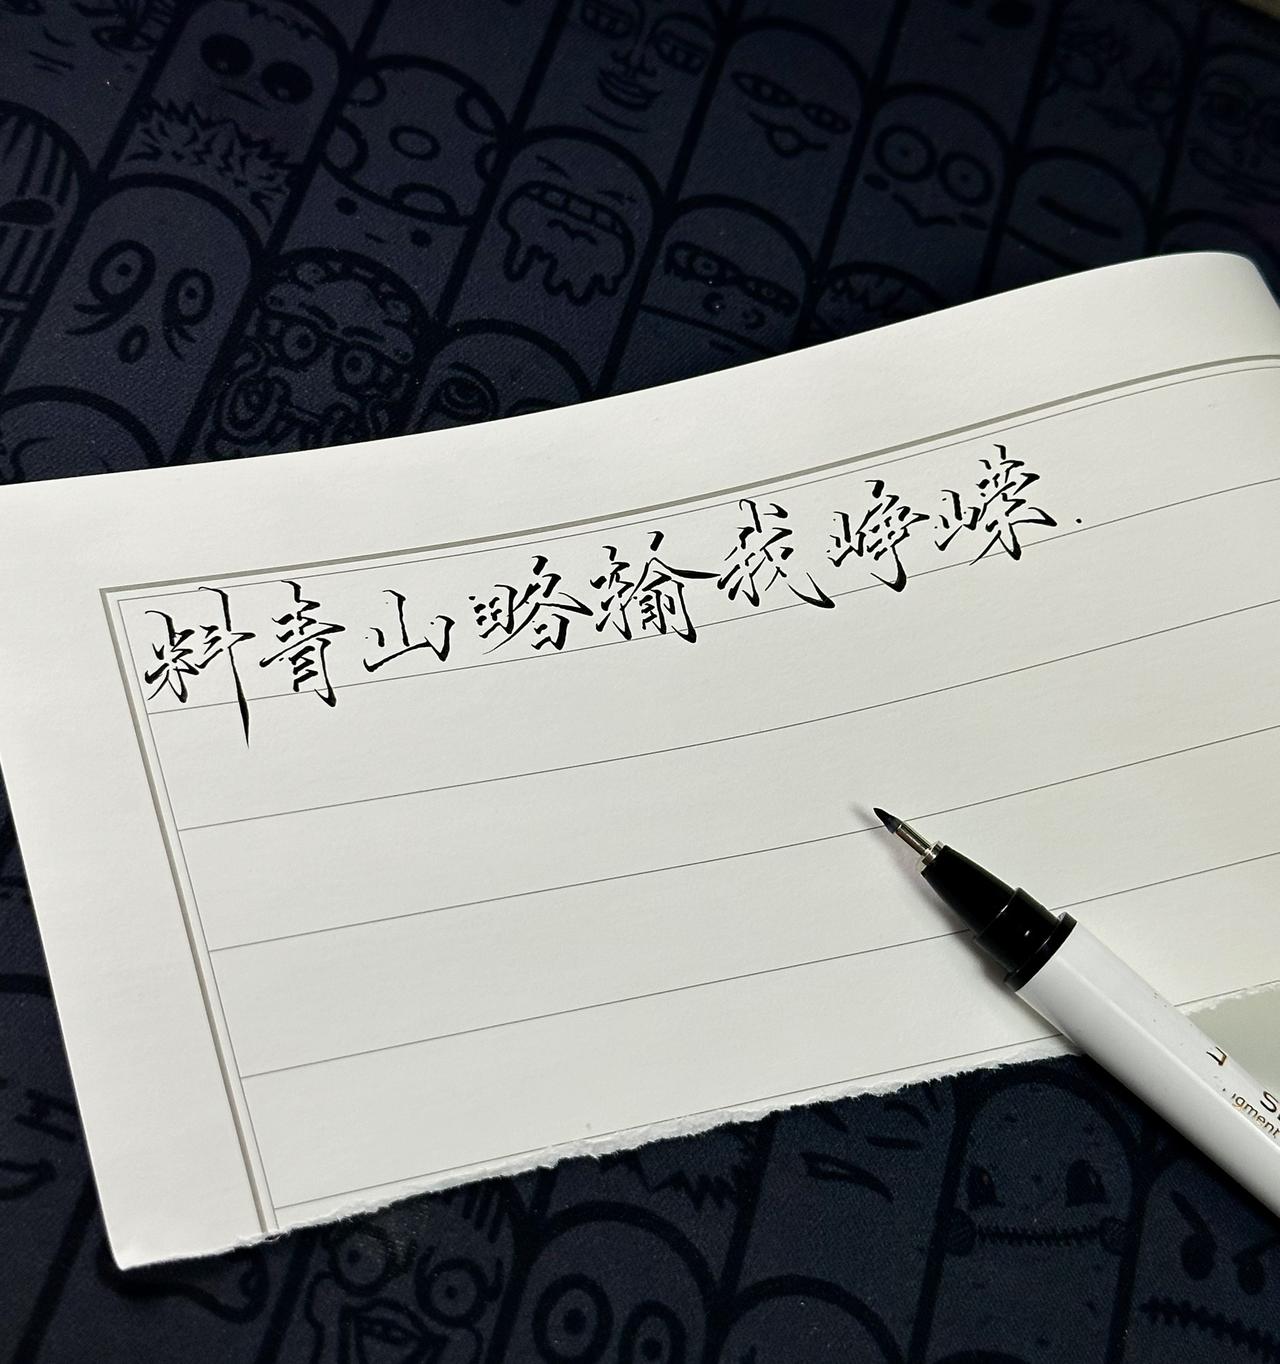 料青山略输我峥嵘.